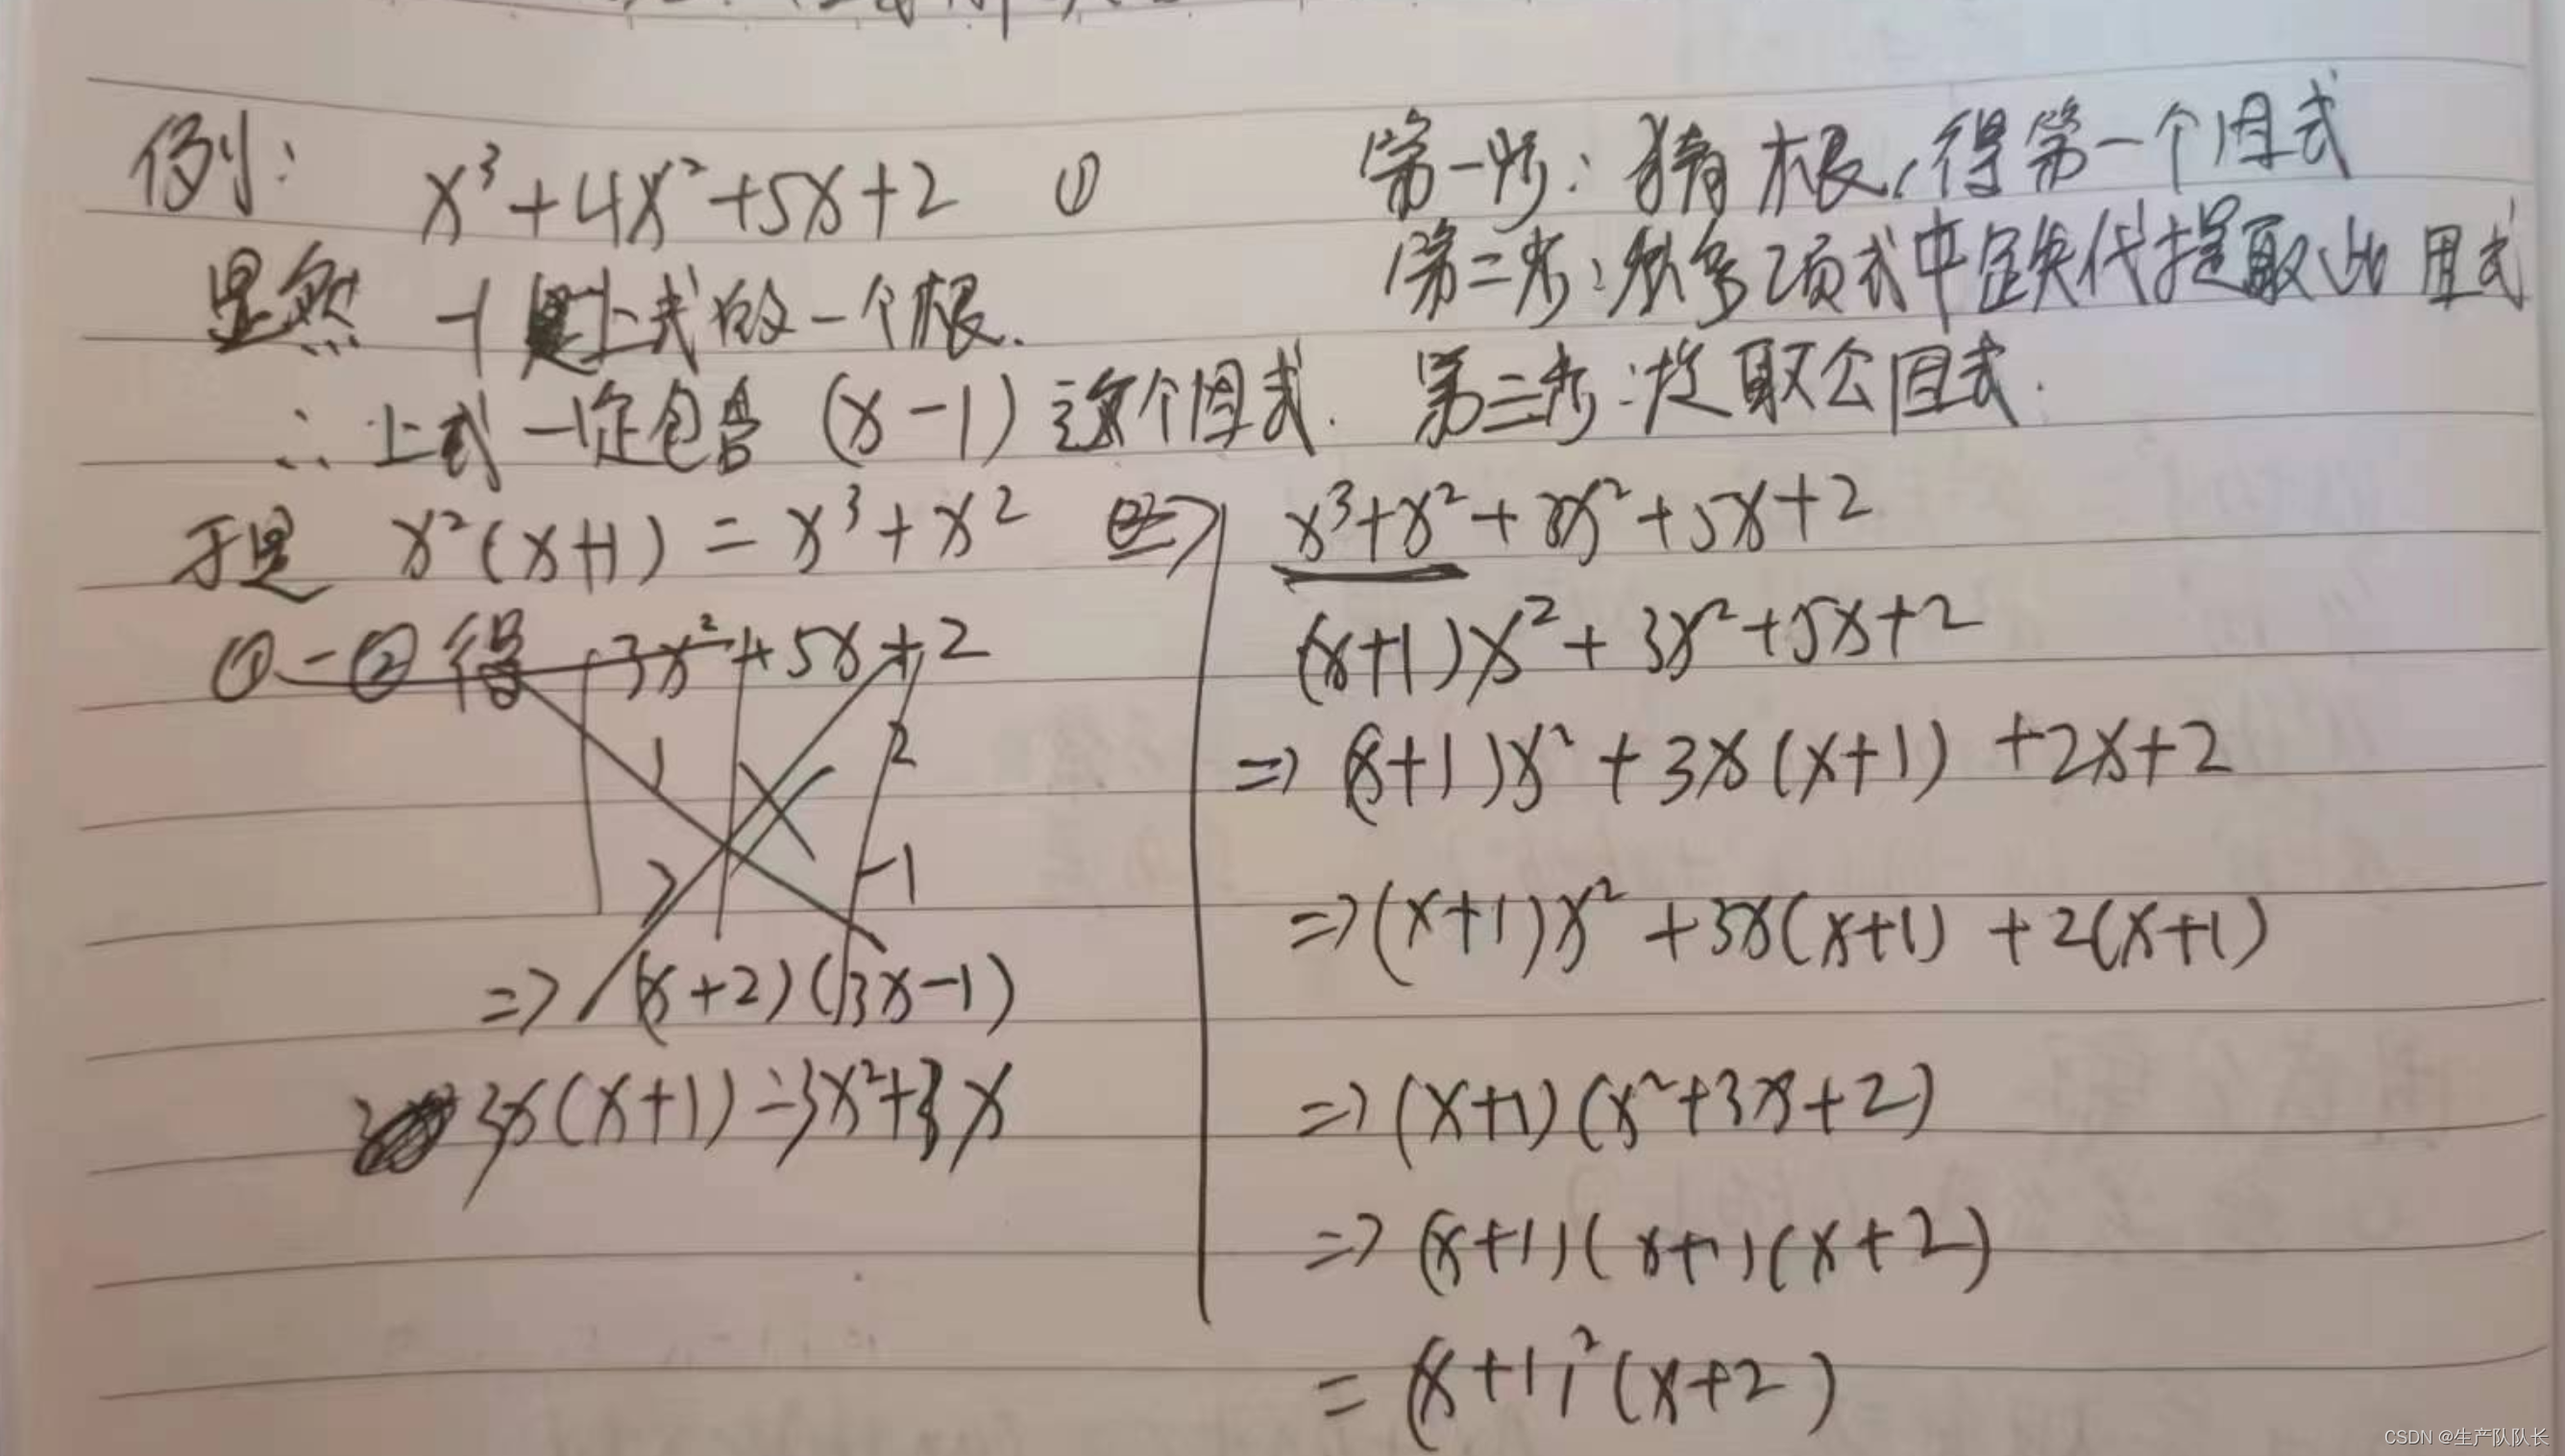 例: x³+4x²+5x+2 ①
显然 -1 是上式的一个根.
∴上式一定包含 (x-1) 这个因式.
于是 x²(x+1) = x³+x² ②
①-② 得 3x²+5x+2
1 2
-1
=> (x+2)(3x-1)
3x(x+1)=3x²+3x
第一步: 猜根,得第一个因式
第二步: 从多项式中迭代提取此因式
第三步: 提取公因式.
=> x³+x²+3x²+5x+2
(x+1)x²+3x²+5x+2
=> (x+1)x²+3x(x+1)+2x+2
=> (x+1)x²+3x(x+1)+2(x+1)
=> (x+1)(x²+3x+2)
=> (x+1)(x+1)(x+2)
= (x+1)²(x+2)
CSDN @生产队队长